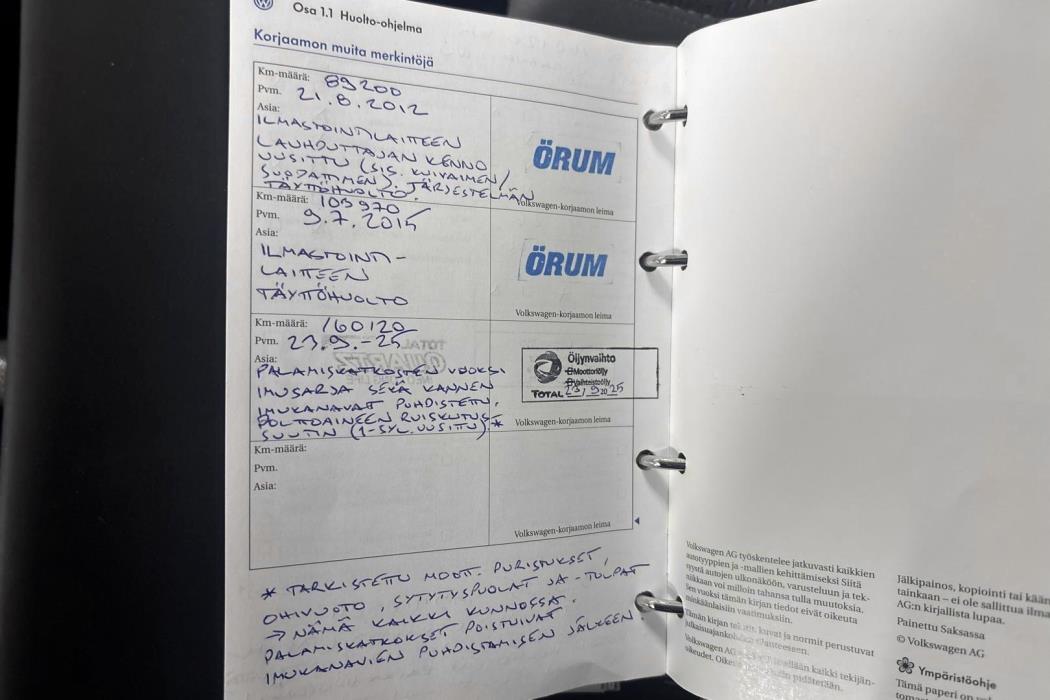 Osa 1.1 Huolto-ohjelma
Korjaamon muita merkintöjä
Km-määrä: 89200
Pvm. 21.8.2012
Asia:
ILMASTOINTILAITTEEN
LAUHDUTTAJAN KENNO
UUSITTU (SIS. KUIVAIMEN/
SUODATTIMEN). JÄRJESTELMÄN
TÄYTTÖHUOLTO.
ÖRUM
Volkswagen-korjaamon leima
Km-määrä: 103970
Pvm. 9.7.2015
Asia:
ILMASTOINTI-
LAITTEEN
TÄYTTÖHUOLTO
ÖRUM
Volkswagen-korjaamon leima
Km-määrä: 160120
Pvm. 23.9.-25
Asia:
PALAMISKATKOSTEN VUOKSI
IMUSARJA SEKÄ KANNEN
IMUKANAVAT PUHDISTETTU.
POLTTOAINEEN RUISKUTUS-
SUUTIN (1-SYL. UUSITTU).*
Öljynvaihto
Moottoriöljy
Vaihteistoöljy
TOTAL 23/9 2025
Volkswagen-korjaamon leima
Km-määrä:
Pvm.
Asia:
Volkswagen-korjaamon leima
* TARKISTETTU MOOT. PURISTUKSET,
OHIVUOTO, SYTYTYSPUOLAT JA -TULPAT
→ NÄMÄ KAIKKI KUNNOSSA.
PALAMISKATKOKSET POISTUIVAT
IMUKANAVIEN PUHDISTAMISEN JÄLKEEN.
Volkswagen AG työskentelee jatkuvasti kaikkien
autotyyppien ja -mallien kehittämiseksi Siitä
syystä autojen ulkonäköön, varusteluun ja tek-
niikkaan voi milloin tahansa tulla muutoksia,
len vuoksi tämän kirjan tiedot eivät oikeuta
minkäänlaisiin vaatimuksiin.
Tämän kirjan kuvat ja normit perustuvat
Volkswagen AG
kaikki tekijän-
oikeudet. Oikeu
pidätetään.
Jälkipainos, kopiointi tai kään
tainkaan – ei ole sallittua ilma
AG:n kirjallista lupaa.
Painettu Saksassa
© Volkswagen AG
Ympäristöohje
Tämä paperi on